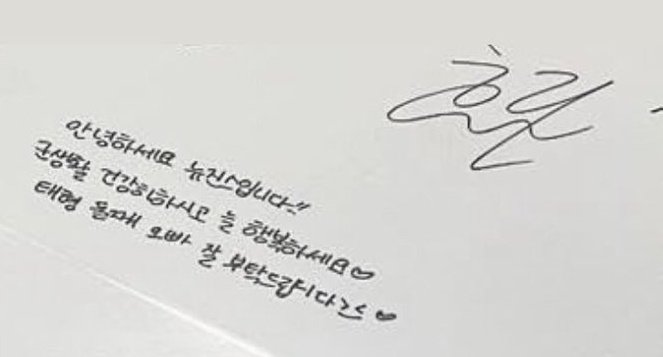 안녕하세요 뉴진스입니다!!
군생활 건강히하시고 늘 행복하세요♡
태형 올째 오빠 잘 부탁드립니다>< ♥